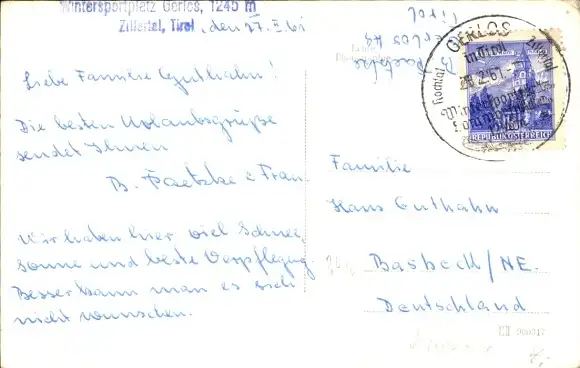 Wintersportplatz Gerlos, 1245 m
Zillertal, Tirol, den 27.II.61
Liebe Familie Guthahn!
Die besten Urlaubsgrüße
sendet Ihnen
B. Paetzke & Frau
Wir haben hier viel Schnee,
Sonne und beste Verpflegung.
Besser kann man es sich
nicht wünschen.
Tirol
Gerlos
B.
GERLOS
in Tirol
Zillertal
Hochtal
2.61
REPUBLIK ÖSTERREICH
Familie
Hans Guthahn
Basbeck/NE.
Deutschland